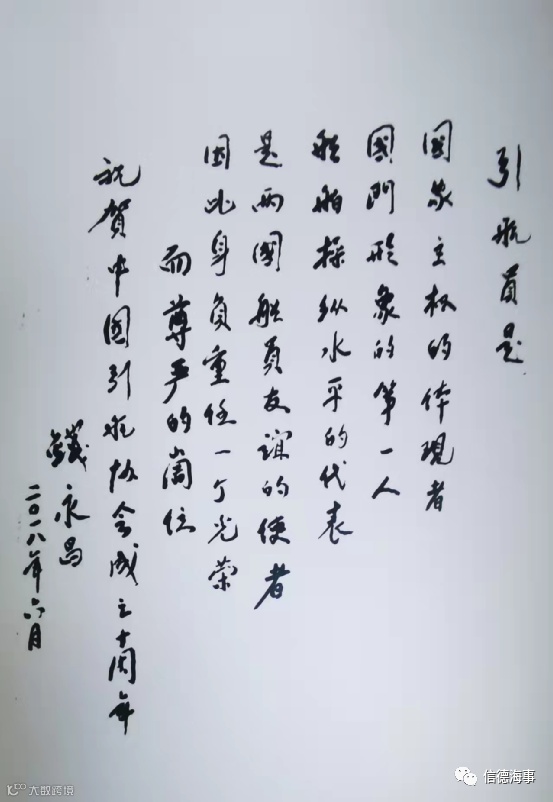 引航員是
國家主权的体現者
國門形象的第一人
船舶操纵水平的代表
是两國船員友谊的使者
因此身負重任一个光荣
而尊严的崗位
祝賀中國引航协会成立十周年
钱永昌
二〇一八年六月
信德海事
大数跨境